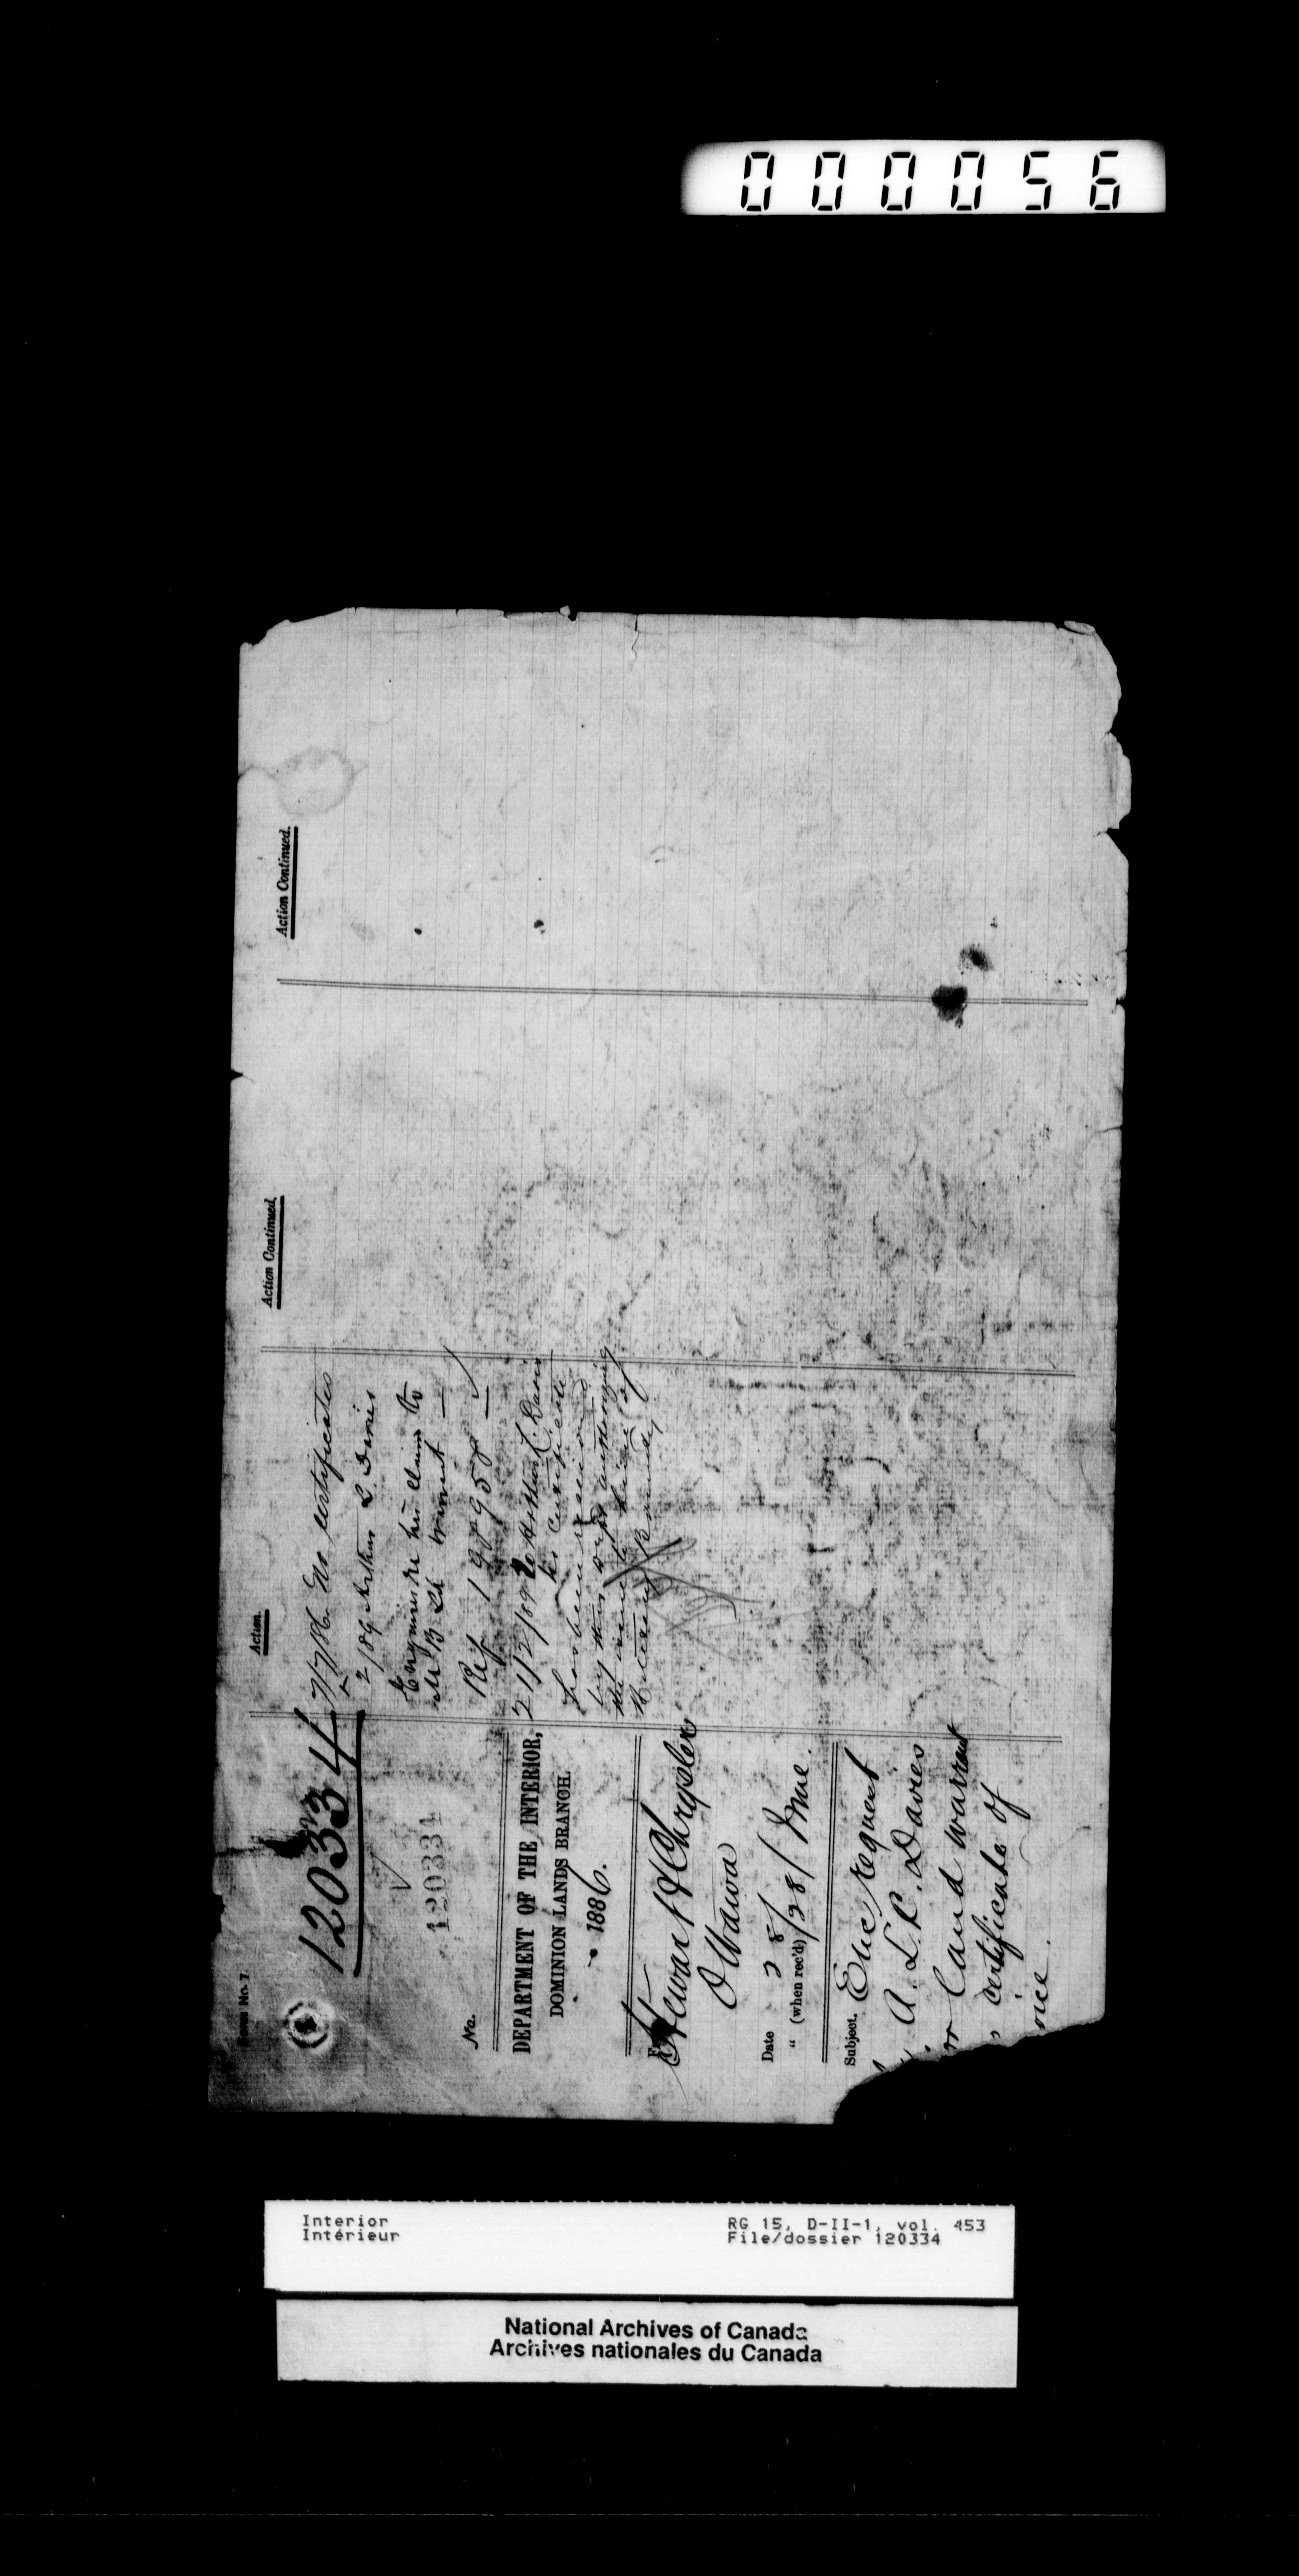 000056
Form No. 7
120334
120334
No.
DEPARTMENT OF THE INTERIOR,
DOMINION LANDS BRANCH.
1886.
Stewart & Chrysler
Ottawa
Date 28/
" (when rec'd) 28/ June.
Subject. Enc request
A. L. C. Davies
for land warrant
certificate of
Action.
7/7/86 No certificates
2/89 Arthur L. Davies
Enquires re his claim to
M B Ld warrant
Ref 198958
21/2/89 To Arthur L. Davies
his certificate
has been received
the issue to him of
Military Bounty
Action Continued.
Action Continued.
Interior
Intérieur
RG 15, D-II-1, vol. 453
File/dossier 120334
National Archives of Canada
Archives nationales du Canada